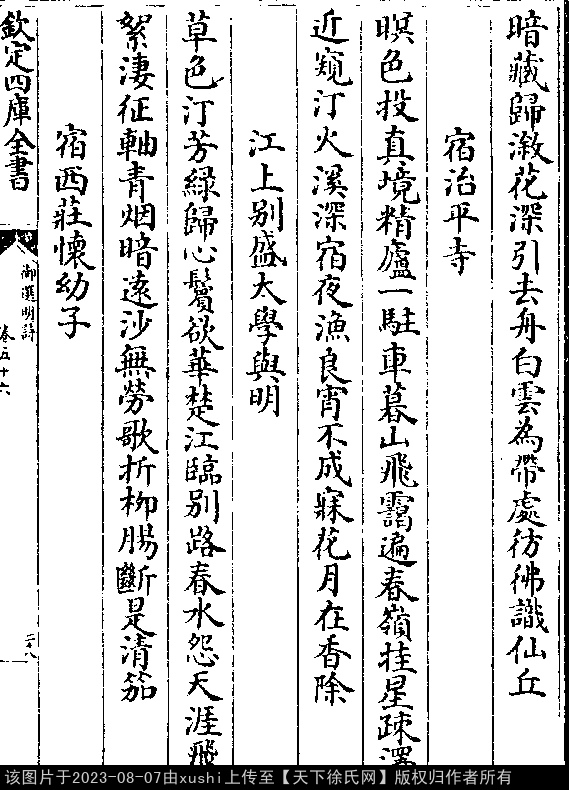 暗藏歸溆花深引去舟白雲為帶處彷彿識仙丘
宿治平寺
暝色投真境精廬一駐車暮山飛靄遍春嶺挂星疎澤
近窺汀火溪深宿夜漁良宵不成寐花月在香除
江上别盛太學與明
草色汀芳緑歸心鬢欲華楚江臨别路春水怨天涯飛
絮淒征軸青烟暗遠沙無勞歌折柳腸斷是清笳
宿西莊懷幼子
欽定四庫全書
御選明詩
卷五十六
二十八
该图片于2023-08-07由xushi上传至【天下徐氏网】版权归作者所有